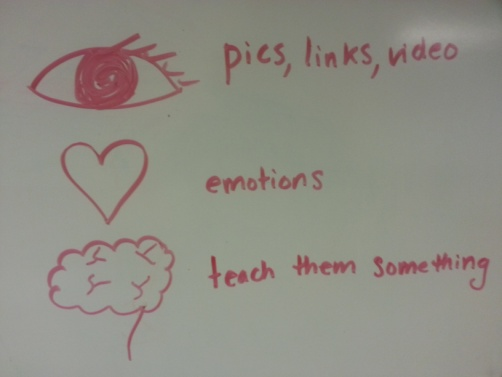 pics, links, video
emotions
teach them something